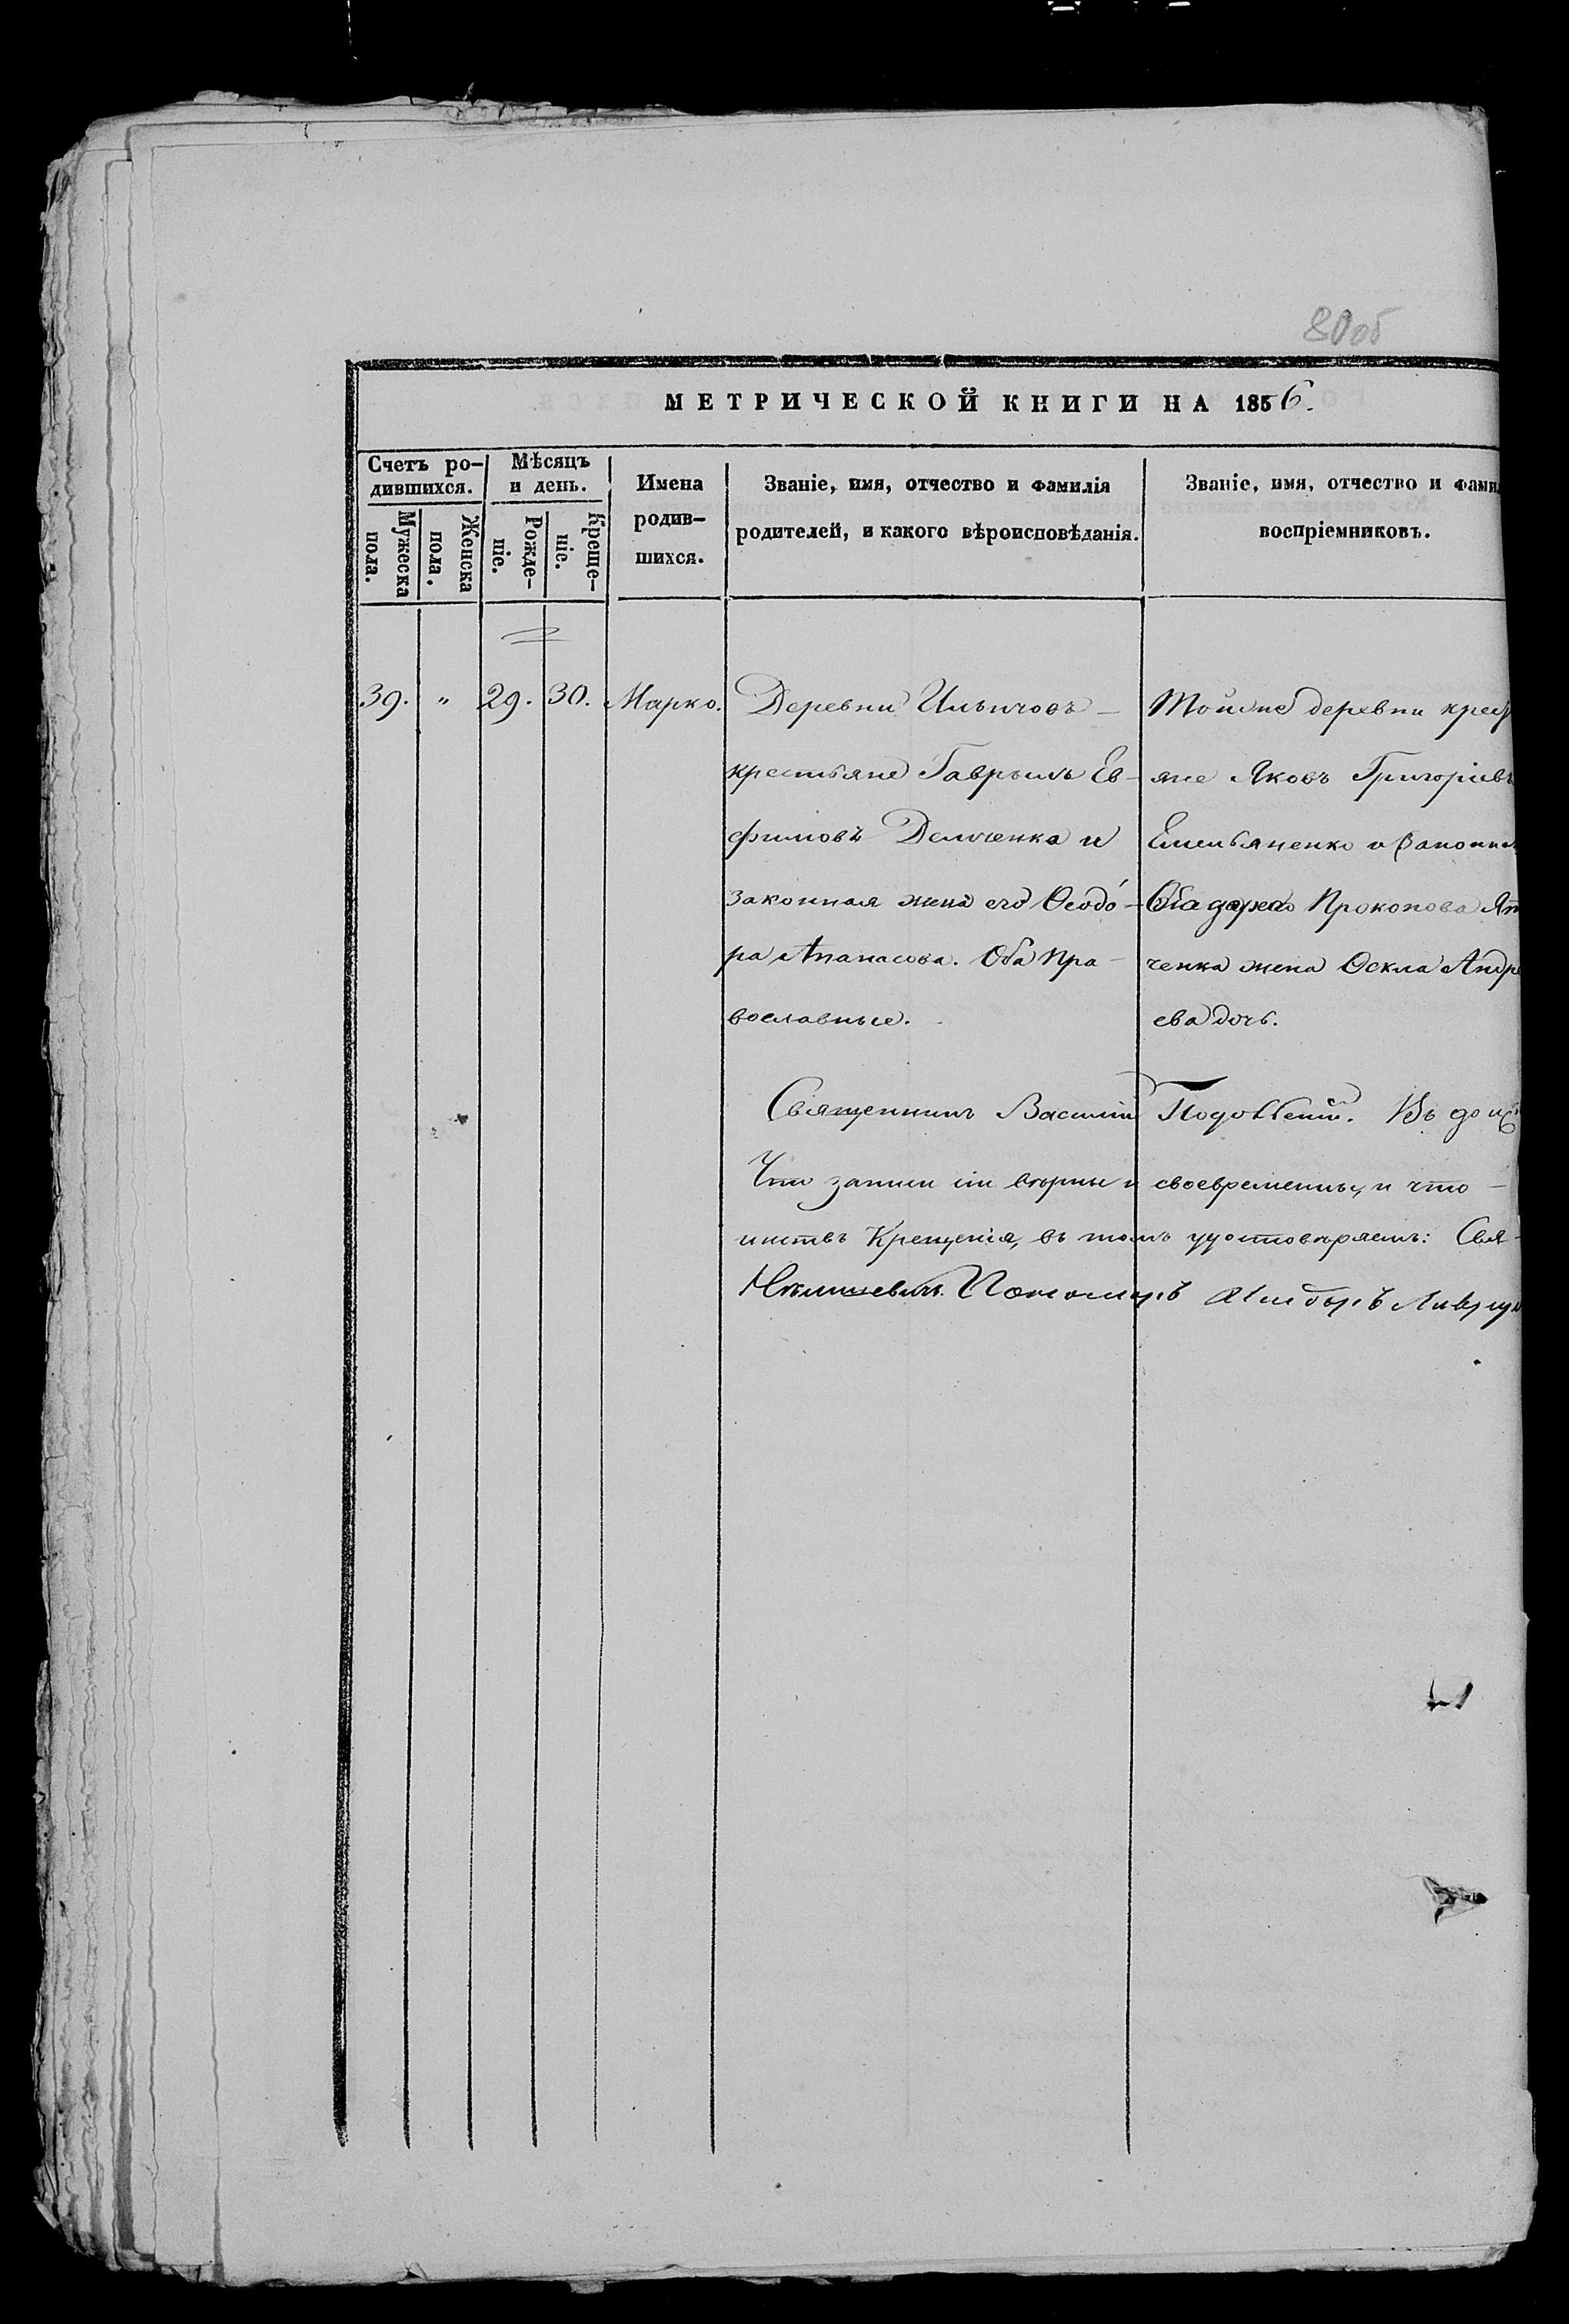 80об
МЕТРИЧЕСКОЙ КНИГИ НА 1856.
Счетъ ро-
дившихся.
Мужеска
пола.
Женска
пола.
Мѣсяцъ
и день.
Рожде-
ніе.
Креще-
ніе.
Имена
родив-
шихся.
Званіе, имя, отчество и фамилія
родителей, и какого вѣроисповѣданія.
Званіе, имя, отчество и фами
воспріемниковъ.
39. " 29. 30. Марко.
Деревни Ильичовъ -
крестьяне Гаврыилъ Ев-
фимовъ Демченка и
законная жена его Ѳеодо-
ра Апанасова. Оба пра-
вославные.
Тойже деревни крест
яне Яковъ Григоріевъ
Емельяненко и
Прокопова
ченка жена Ѳекла Андре
ева дочь.
Священникъ Василій
Что записи сіи вѣрны и своевременны, и что -
инствъ Крещенія, въ томъ удостовѣряемъ: Свя-
Пономарь